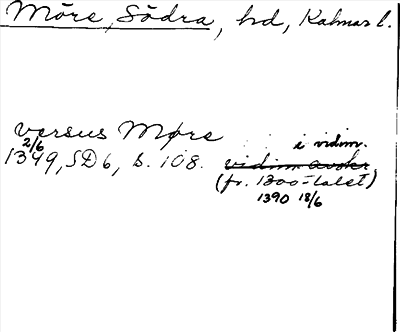 Möre, Södra, hd, Kalmar l.
versus Møre
2/6
1349, SD 6, s. 108. i vidim.
vidim. avskr.
(fr. 1300-talet)
1390 18/6